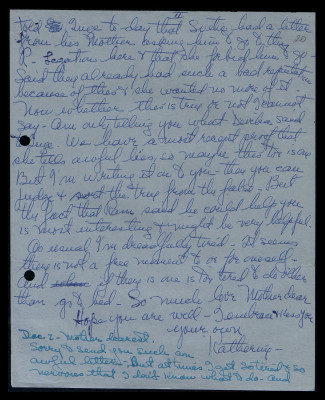 II
told Inga to-day that had a letter
from his Mother & to go to
Legation here & that she forbid him
said they already had such a bad reputation
because of this & she wanted no more of it
Now whether this is true or not I cannot
say - am only telling you what said
We have a most recent proof that
she tells awful lies, so maybe this too is one
But I'm writing it all to you - then you can
judge & sort the true from the false - But
the fact that said he could help you
is most interesting & might be very helpful.
As usual I'm dreadfully tired - It seems
there is not a free moment to or for oneself -
And if there is one is too tired to do other
than go to bed - So much love Mother dear
Hope you are well - I embrace & kiss you
your own
Katherine -
Dec 1 - Mother dearest.
Sorry to send you such an
awful letter - But at times I get so tired & so
nervous that I don't know what to do - and